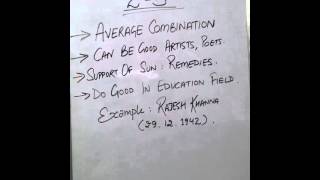 2-3
→ AVERAGE COMBINATION
→ CAN BE GOOD ARTISTS, POETS.
→ SUPPORT OF SUN : REMEDIES.
→ DO GOOD IN EDUCATION FIELD
Example : RAJESH KHANNA
(29.12.1942)